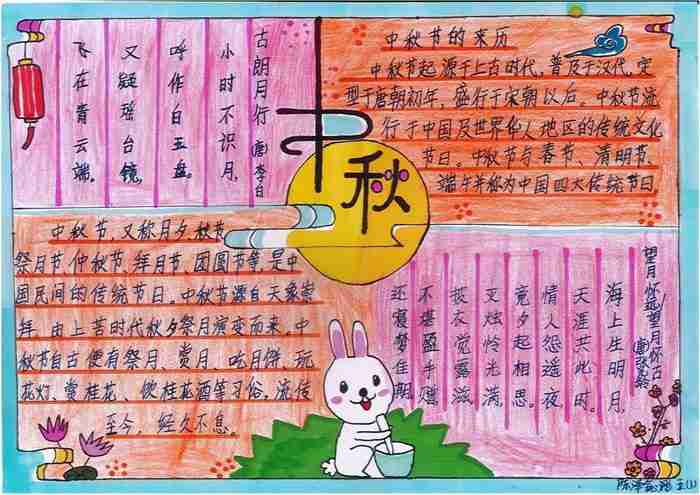 古朗月行
(唐)李白
小时不识月,
呼作白玉盘。
又疑瑶台镜,
飞在青云端。
中秋
中秋节的来历
中秋节起源于上古时代,普及于汉代,定
型于唐朝初年,盛行于宋朝以后。中秋节流
行于中国及世界华人地区的传统文化
节日。中秋节与春节、清明节、
端午并称为中国四大传统节日。
中秋节,又称月夕、秋节、
祭月节、仲秋节、拜月节、团圆节等,是中
国民间的传统节日。中秋节源自天象崇
拜,由上古时代秋夕祭月演变而来。中
秋节自古便有祭月、赏月、吃月饼、玩
花灯、赏桂花、饮桂花酒等习俗,流传
至今,经久不息。
望月怀远/望月怀古
(唐)张九龄
海上生明月,
天涯共此时。
情人怨遥夜,
竟夕起相思。
灭烛怜光满,
披衣觉露滋。
不堪盈手赠,
还寝梦佳期。